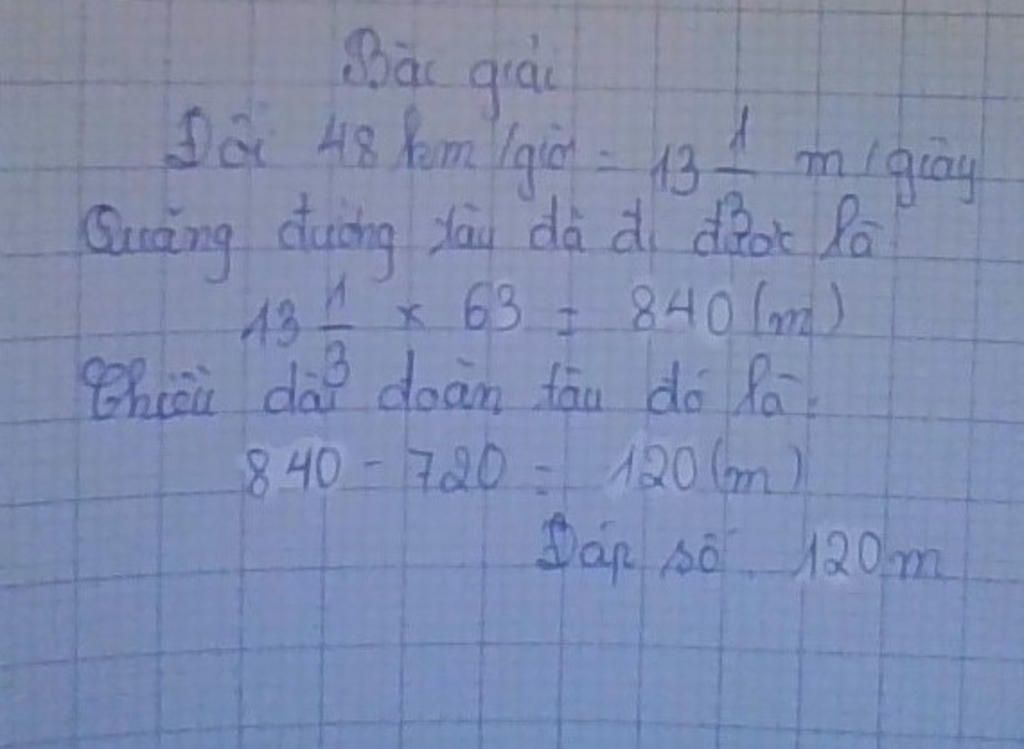 Bài giải
Đổi 48 km/giờ = 13 1/3 m/giây
Quãng đường tàu đã đi được là
13 1/3 × 63 = 840 (m)
Chiều dài đoàn tàu đó là:
840 - 720 = 120 (m)
Đáp số: 120m